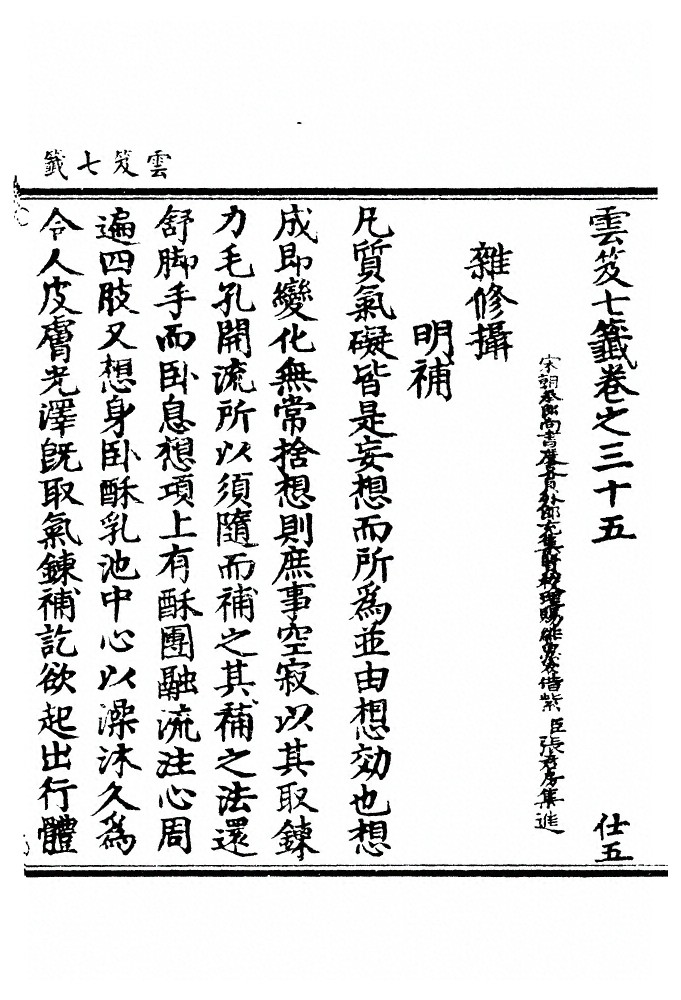 雲笈七籤
雲笈七籤卷之三十五 仕五
宋朝奉郎尚書度支員外郎充集賢校理賜緋魚袋借紫臣張君房集進
雜修攝
明補
凡質氣礙皆是妄想而所為並由想効也想
成即變化無常捨想則庶事空寂以其取鍊
力毛孔開流所以須隨而補之其補之法還
舒脚手而卧息想項上有酥團融流注心周
遍四肢又想身卧酥乳池中心以澡沐久為
令人皮膚光澤旣取氣鍊補訖欲起出行體